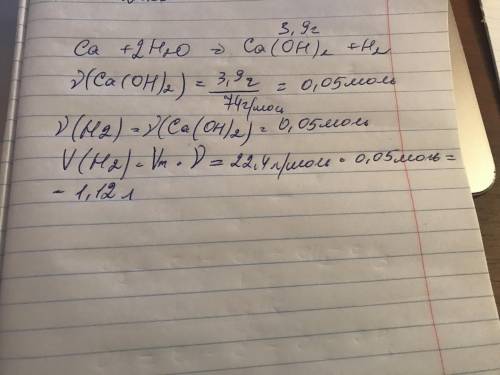 3,9г
Ca + 2H₂O = Ca(OH)₂ + H₂
ν(Ca(OH)₂) = 3,9г / 74г/моль = 0,05моль
ν(H2) = ν(Ca(OH)₂) = 0,05моль
V(H2) = Vm · ν = 22,4л/моль · 0,05моль =
= 1,12л